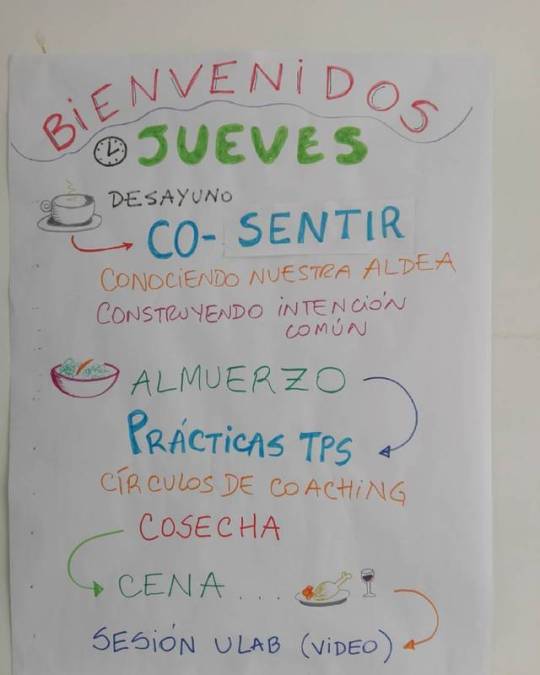 BiENVENiDOS
JUEVES
DESAYUNO
CO- SENTIR
CONOCiENDO NUESTRA ALDEA
CONSTRUYENDO iNTENCiÓN
COMÚN
ALMUERZO
PRÁCTiCAS TPS
CÍRCULOS DE COACHiNG
COSECHA
CENA ...
SESiÓN ULAB (ViDEO)